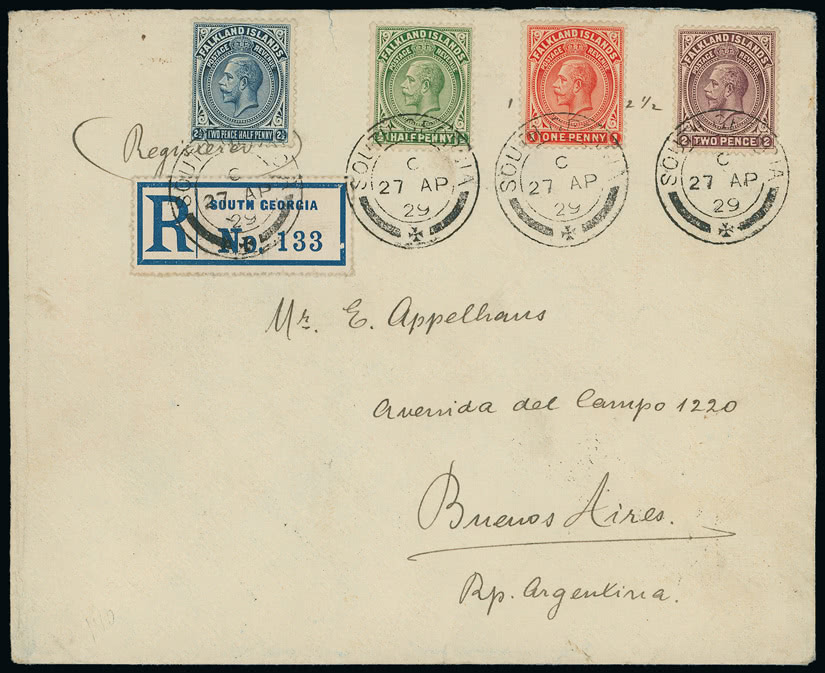 FALKLAND ISLANDS
POSTAGE REVENUE
2½ TWO PENCE HALF PENNY 2½
FALKLAND ISLANDS
POSTAGE REVENUE
½ HALFPENNY ½
FALKLAND ISLANDS
POSTAGE REVENUE
1 ONE PENNY 1
FALKLAND ISLANDS
POSTAGE REVENUE
2 TWO PENCE 2
1
2 1/2
Registered
C
27 AP
29
SOUTH GEORGIA
C
27 AP
29
SOUTH GEORGIA
C
27 AP
29
SOUTH GEORGIA
C
27 AP
29
R SOUTH GEORGIA
No. 133
Mr. E. Appelhans
Avenida del Campo 1220
Buenos Aires.
Rp. Argentina.